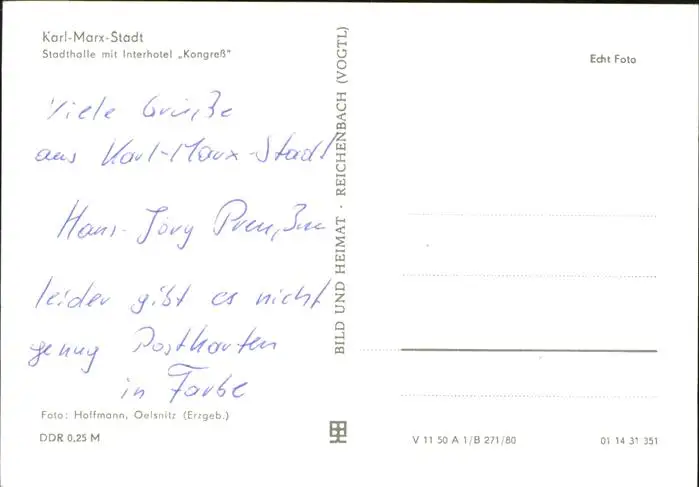 Karl-Marx-Stadt
Stadthalle mit Interhotel „Kongreß"
Viele Grüße
aus Karl-Marx-Stadt
Hans-Jörg
leider gibt es nicht
genug Postkarten
in Farbe
Foto: Hoffmann, Oelsnitz (Erzgeb.)
DDR 0,25 M
BILD UND HEIMAT · REICHENBACH (VOGTL)
Echt Foto
V 11 50 A 1/B 271/80
01 14 31 351